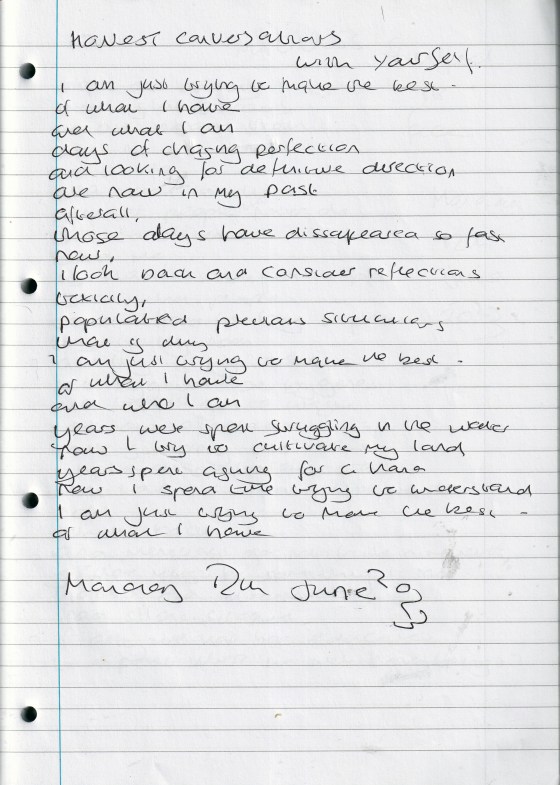 Honest conversations
with yourself.
I am just trying to make the best -
of what I have
and what I am
days of chasing perfection
and looking for definitive direction
are now in my past
afterall,
those days have dissapeared so fast
now,
I look back and consider reflections
toxicity,
populated previous situations
that is dung
I am just trying to make the best -
of what I have
and who I am
years were spent struggling in the water
now I try to cultivate my land
years spent asking for a hand
now I spend time trying to understand
I am just trying to make the best -
of what I have
Monday June